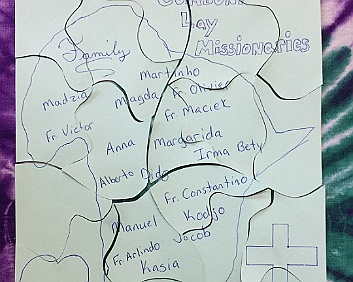 Comboni
Lay
Missionaries
Family
Martinho
Madzia
Magda
Fr. Olivier
Fr. Maciek
Fr. Victor
Anna
Margarida
Irma Bety
Alberto
Dida
Fr. Constantino
Manuel
Kodjo
Jacob
Fr Arlindo
Kasia